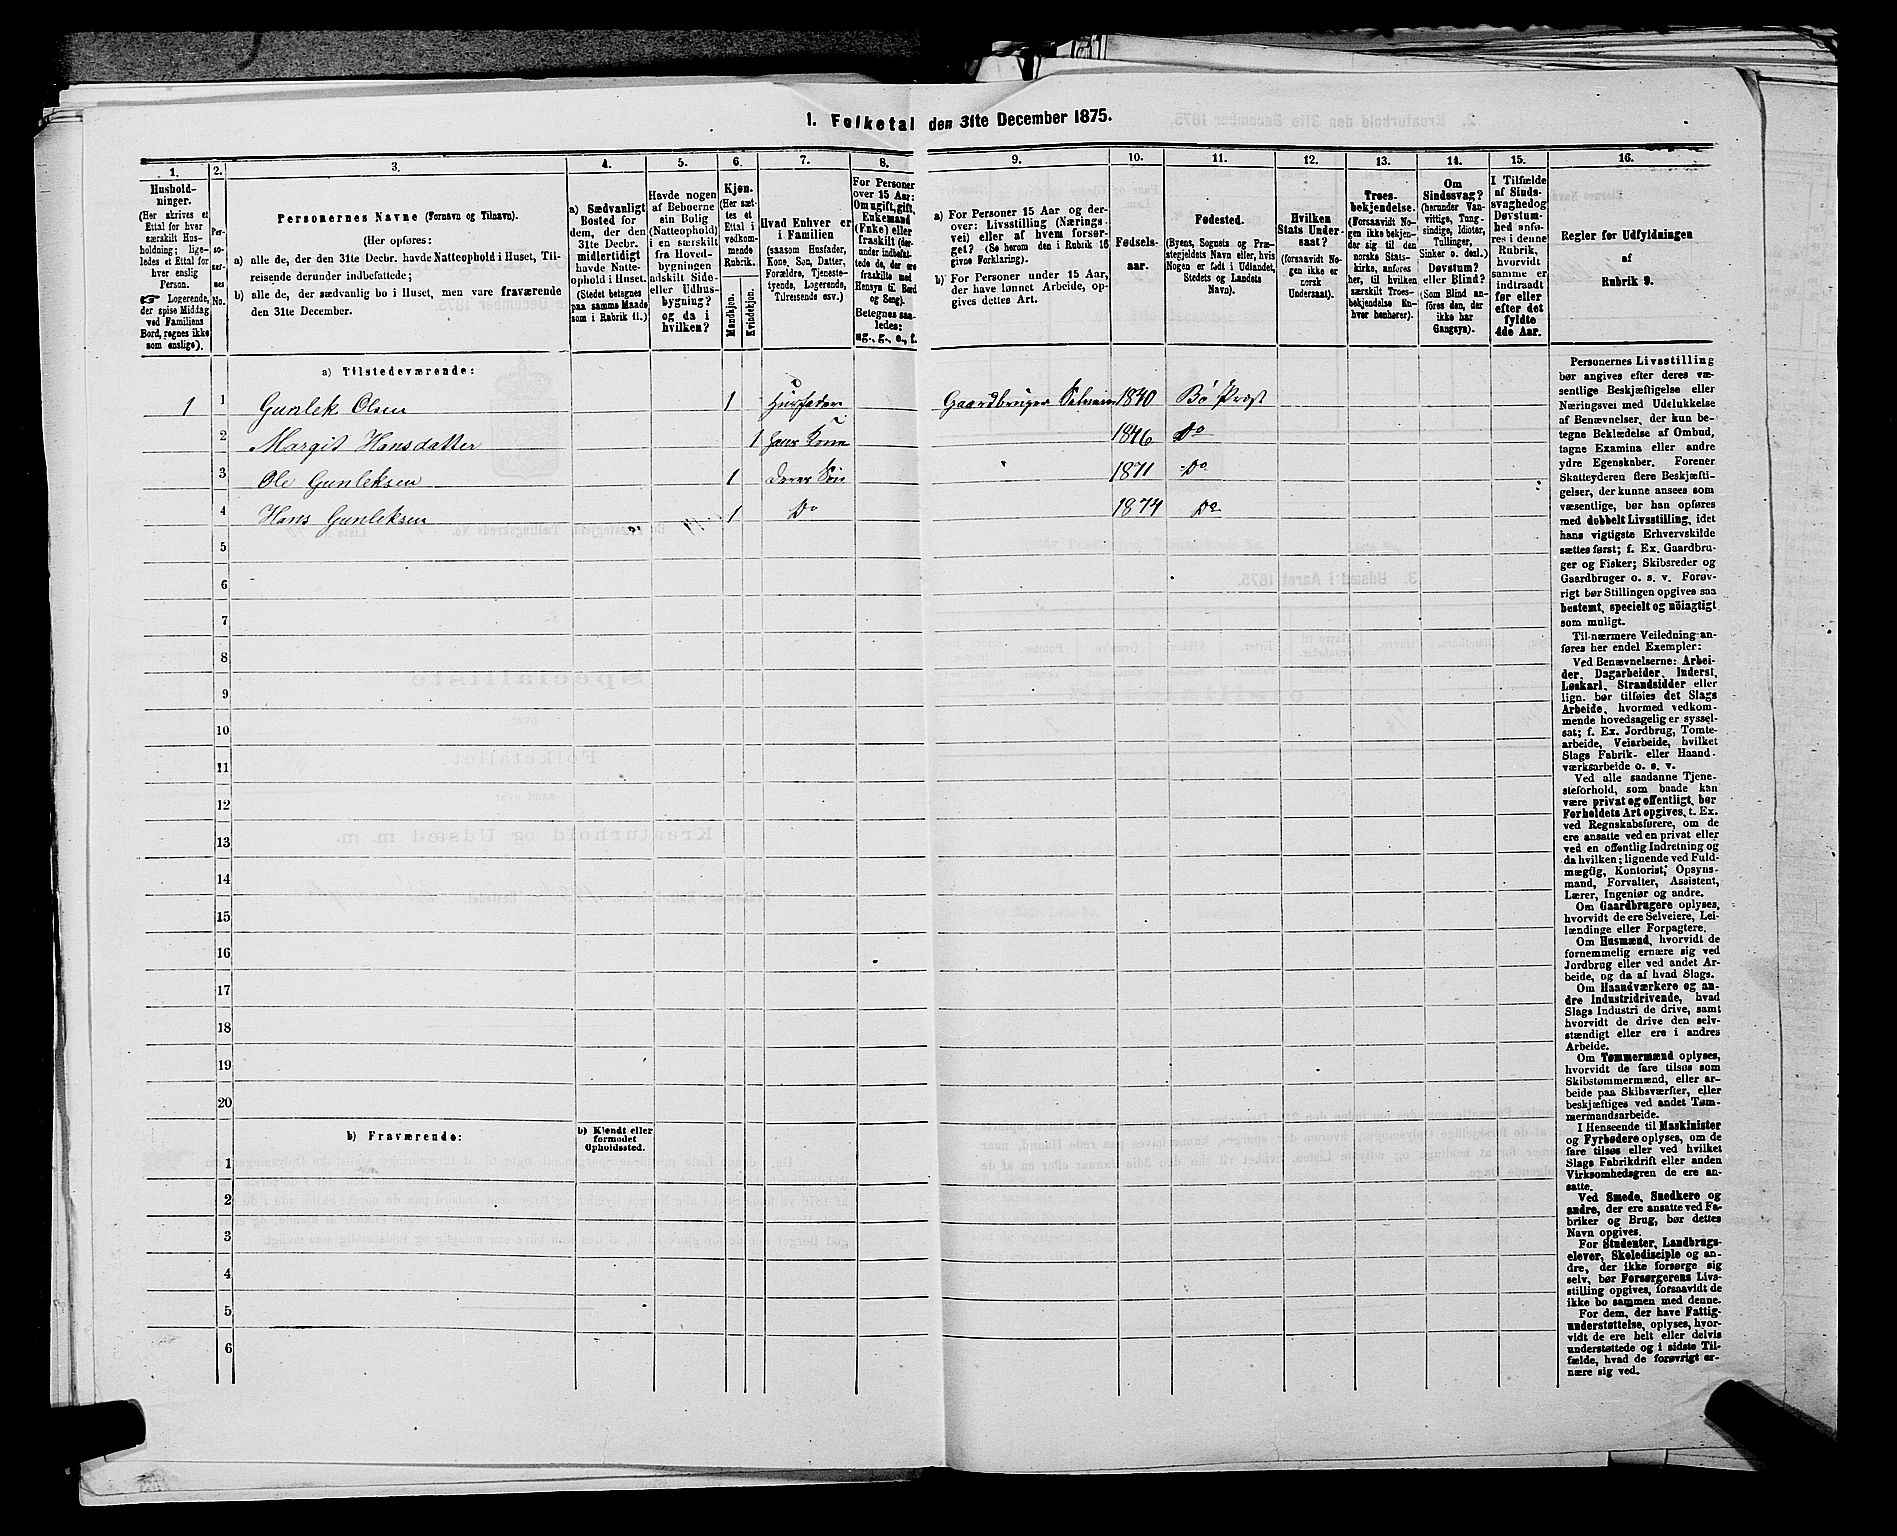 1. Folketal den 31te December 1875.
1. 2. 3. 4. 5. 6. 7. 8. 9. 10. 11. 12. 13. 14. 15. 16.
Hushold-
ninger.
(Her skrives et
Ettal for hver
særskilt Hus-
holdning; lige-
ledes et Ettal for
hver enslig
Person.
☞ Logerende,
der spise Middag
ved Familiens
Bord, regnes ikke
som enslige).
Per-
so-
ner-
nes
No.
Personernes Navne (Fornavn og Tilnavn).
(Her opføres:
a) alle de, der den 31te Decbr. havde Natteophold i Huset, Til-
reisende derunder indbefattede;
b) alle de, der sædvanlig bo i Huset, men vare fraværende
den 31te December.
a) Sædvanligt
Bosted for
dem, der den
31te Decbr.
midlertidigt
havde Natte-
ophold i Huset.
(Stedet betegnes
paa samme Maade
som i Rubrik 11.)
Havde nogen
af Beboerne
sin Bolig
(Natteophold)
i en særskilt
fra Hoved-
bygningen
adskilt Side-
eller Udhus-
bygning?
og da i
hvilken?
Kjøn.
(Her sæt-
tes et
Ettal i
vedkom-
mende
Rubrik.
Mandkjøn.
Kvindekjøn.
Hvad Enhver er
i Familien
(saasom Husfader,
Kone, Søn, Datter,
Forældre, Tjeneste-
tyende, Logerende,
Tilreisende osv.)
For Personer
over 15 Aar:
Om ugift, gift,
Enkemand
(Enke) eller
fraskilt (der-
under indbefat-
tede de, der ere
fraskilte med
Hensyn til Bord
og Seng).
Betegnes saa-
ledes:
ug., g., e., f.
a) For Personer 15 Aar og der-
over: Livsstilling (Nærings-
vei) eller af hvem forsør-
get? (Se herom den i Rubrik 16
givne Forklaring).
b) For Personer under 15 Aar,
der have lønnet Arbeide, op-
gives dettes Art.
Fødsels-
aar.
Fødested.
(Byens, Sognets og Præ-
stegjeldets Navn eller, hvis
Nogen er født i Udlandet,
Stedets og Landets
Navn).
Hvilken
Stats Under-
saat?
(forsaavidt No-
gen ikke er
norsk
Undersaat).
Troes-
bekjendelse.
(Forsaavidt No-
gen ikke bekjen-
der sig til den
norske Stats-
kirke, anføres
her, til hvilken
særskilt Troes-
bekjendelse En-
hver henhører).
Om
Sindssvag?
(herunder Van-
vittige, Tung-
sindige, Idioter,
Tullinger,
Sinker o. desl.)
Døvstum?
eller Blind?
(Som Blind an-
føres den, der
ikke har
Gangsyn).
I Tilfælde
af Sinds-
svaghed og
Døvstum-
hed anfø-
res i denne
Rubrik,
hvorvidt
samme er
indtraadt
før eller
efter det
fyldte
4de Aar.
Regler for Udfyldningen
af
Rubrik 9.
a) Tilstedeværende:
1 1 Gunlek Olsen 1 Husfader Gaardbruger Selveier 1840 Bø Præst
2 Margit Hansdatter 1 hans Kone 1846 Do
3 Ole Gunleksen 1 deres Søn 1871 Do
4 Hans Gunleksen 1 Do 1874 Do
5
6
7
8
9
10
11
12
13
14
15
16
17
18
19
20
b) Fraværende:
b) Kjendt eller
formodet
Opholdssted.
1
2
3
4
5
6
Personernes Livsstilling
bør angives efter deres væ-
sentlige Beskjæftigelse eller
Næringsvei med Udelukkelse
af Benævnelser, der kun be-
tegne Beklædelse af Ombud,
tagne Examina eller andre
ydre Egenskaber. Forener
Skatteyderen flere Beskjæfti-
gelser, der kunne ansees som
væsentlige, bør han opføres
med dobbelt Livsstilling, idet
hans vigtigste Erhvervskilde
sættes først; f. Ex. Gaardbru-
ger og Fisker; Skibsreder og
Gaardbruger o. s. v. Forøv-
rigt bør Stillingen opgives saa
bestemt, specielt og nöiagtigt
som muligt.
Til nærmere Veiledning an-
føres her endel Exempler:
Ved Benævnelserne: Arbei-
der, Dagarbeider, Inderst,
Løskarl, Strandsidder eller
lign. bør tilføies det Slags
Arbeide, hvormed vedkom-
mende hovedsagelig er syssel-
sat; f. Ex. Jordbrug, Tomte-
arbeide, Veiarbeide, hvilket
Slags Fabrik- eller Haand-
værksarbeide o. s. v.
Ved alle saadanne Tjene-
steforhold, som baade kan
være privat og offentligt, bør
Forholdets Art opgives, t. Ex.
ved Regnskabsførere, om de
ere ansatte ved en privat eller
ved en offentlig Indretning og
da hvilken; lignende ved Fuld-
mægtig, Kontorist, Opsyns-
mand, Forvalter, Assistent,
Lærer, Ingeniør og andre.
Om Gaardbrugere oplyses,
hvorvidt de ere Selveiere, Lei-
lændinge eller Forpagtere.
Om Husmænd, hvorvidt de
fornemmelig ernære sig ved
Jordbrug eller ved andet Ar-
beide, og da af hvad Slags.
Om Haandværkere og an-
dre Industridrivende, hvad
Slags Industri de drive, samt
hvorvidt de drive den selv-
stændigt eller ere i andres
Arbeide.
Om Tømmermænd oplyses,
hvorvidt de fare tilsøs som
Skibstømmermænd, eller ar-
beide paa Skibsværfter, eller
beskjæftiges ved andet Tøm-
mermandsarbeide.
I Henseende til Maskinister
og Fyrbødere oplyses, om de
fare tilsøs eller ved hvilket
Slags Fabrikdrift eller anden
Virksomhedsgren de ere an-
satte.
Ved Smede, Snedkere og
andre, der ere ansatte ved Fa-
briker og Brug, bør dettes
Navn opgives.
For Studenter, Landbrugs-
elever, Skoledisciple og an-
dre, der ikke forsørge sig
selv, bør Forsørgerens Livs-
stilling opgives, forsaavidt de
ikke bo sammen med denne.
For dem, der have Fattig-
understøttelse, oplyses, hvor-
vidt de ere helt eller delvis
understøttede og i sidste Til-
fælde, hvad de forøvrigt er-
nære sig ved.